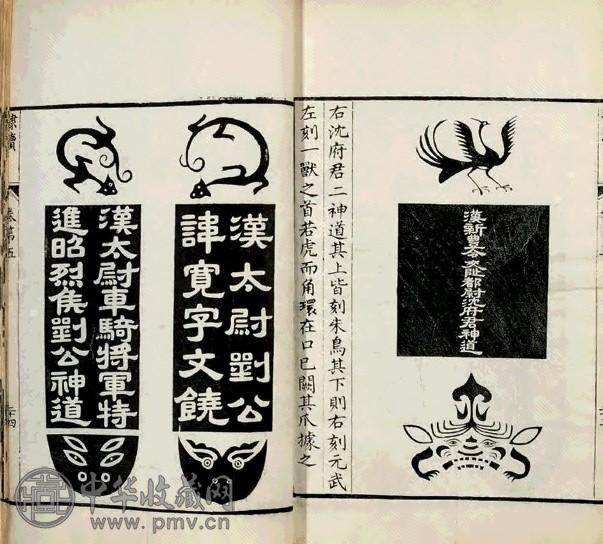 漢新豐令交趾都尉沈府君神道
右沈府君二神道其上皆刻朱鳥其下則右刻元武
左刻一獸之首若虎而角環在口已闕其爪據之
漢太尉劉公
諱寬字文饒
漢太尉車騎將軍特
進昭烈侯劉公神道
隸續
卷第五
二十四
中华收藏网
www.pmv.cn